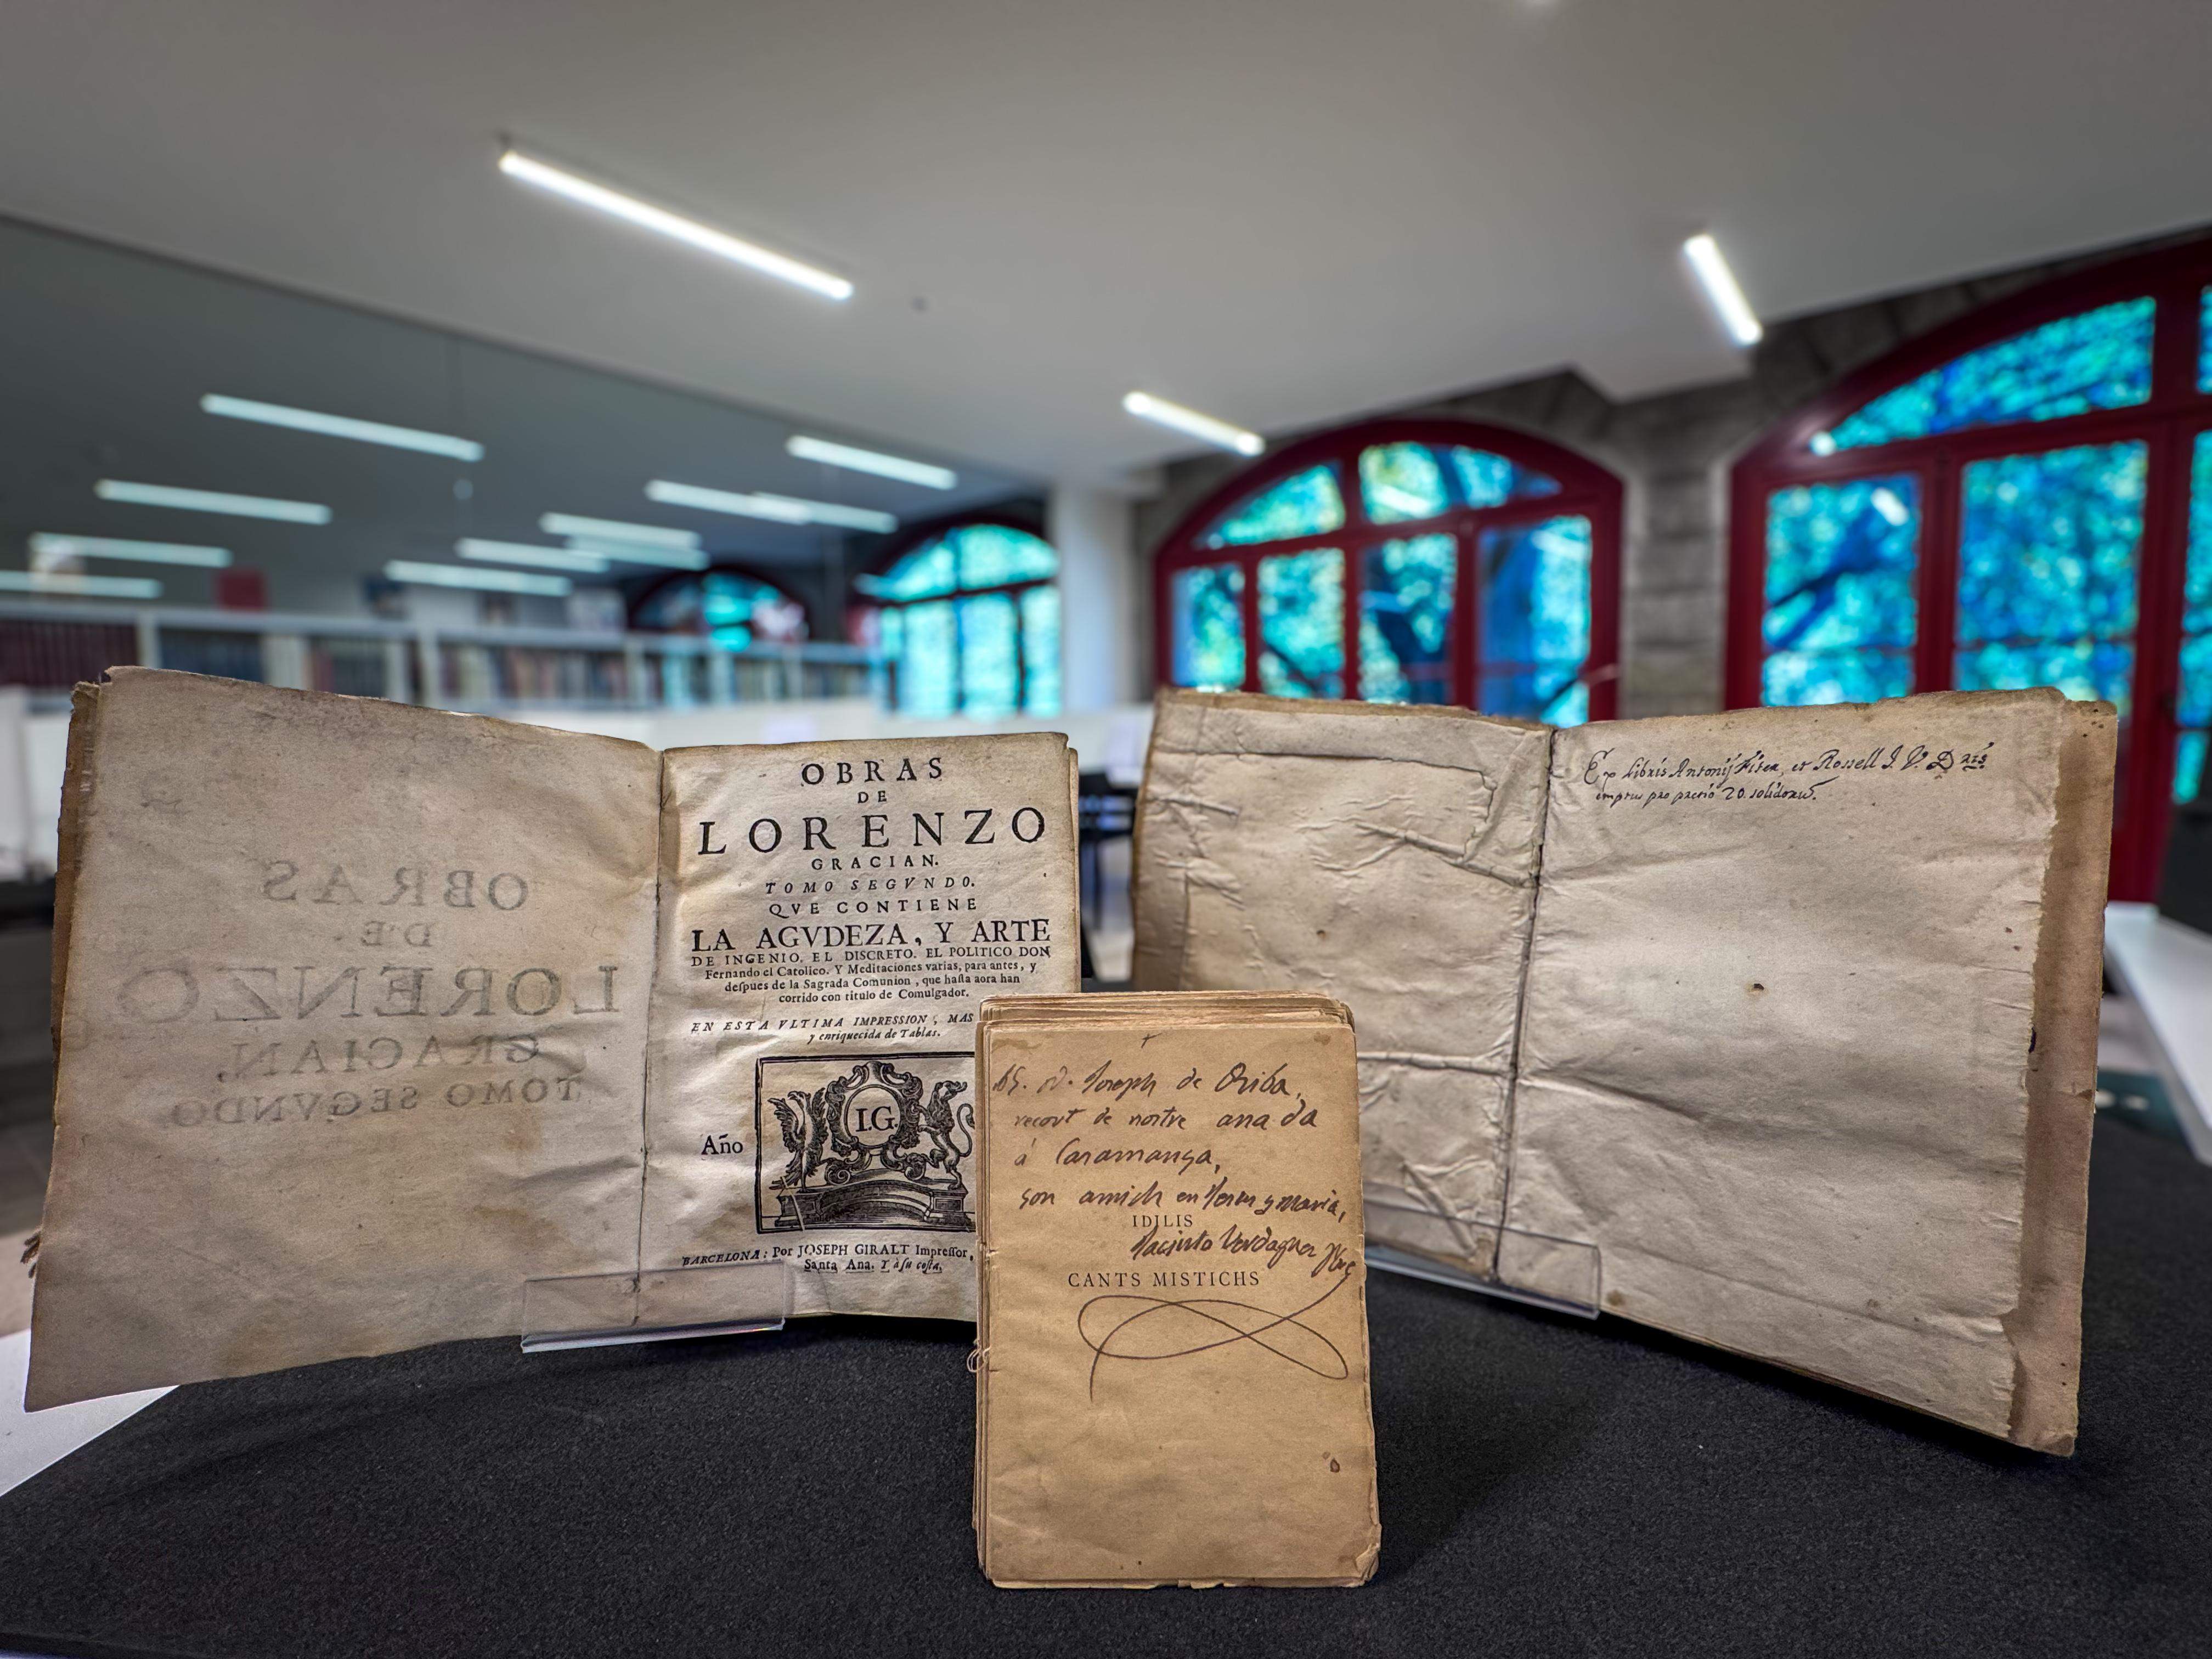 OBRAS
DE
LORENZO
GRACIAN,
TOMO SEGVNDO
OBRAS
DE
LORENZO
GRACIAN.
TOMO SEGVNDO.
QVE CONTIENE
LA AGVDEZA, Y ARTE
DE INGENIO. EL DISCRETO. EL POLITICO DON
Fernando el Catolico. Y Meditaciones varias, para antes, y
deſpues de la Sagrada Comunion, que haſta aora han
corrido con titulo de Comulgador.
EN ESTA VLTIMA IMPRESSION, MAS
y enriquecida de Tablas.
I.G.
Año
BARCELONA: Por JOSEPH GIRALT Impreſſor,
Santa Ana. Y à ſu coſta,
D. Joseph de Oriba,
recort de nostre anada
á Caramanya,
son amich en Jesus y Maria,
IDILIS
Jacinto Verdaguer Pbre
CANTS MISTICHS
Ex libris Antonij Fiter, et Rossell J. V. D
emptus pro pretio 20. solidorum.